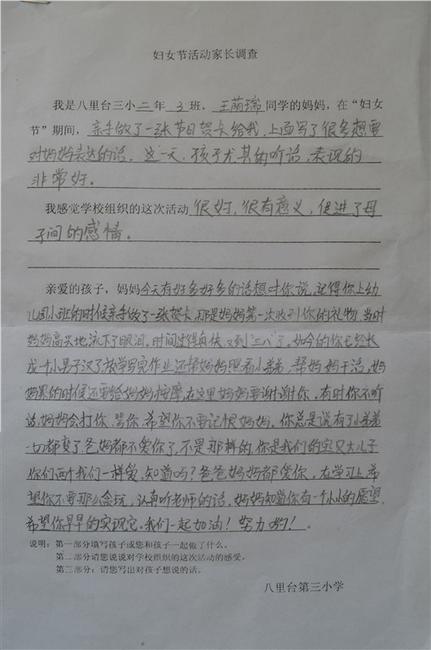 妇女节活动家长调查
我是八里台三小二年 3 班、王萌瑞同学的妈妈，在“妇女
节”期间，亲手做了一张节日贺卡给我，上面写了很多想要
对妈妈表达的话，这一天，孩子尤其的听话，表现的
非常好。
我感觉学校组织的这次活动很好，很有意义，促进了母
子间的感情。
亲爱的孩子，妈妈今天有好多好多的话想对你说，记得你上幼
儿园小班的时候亲手做了一张贺卡，那是妈妈第一次收到你的礼物，当时
妈妈高兴地流下了眼泪，时间过得真快又到“三八”了，如今的你已经长
成小男子汉了放学写完作业还帮妈妈照看小弟弟，帮妈妈干活，妈
妈累的时候还要给妈妈按摩，在这里妈妈要谢谢你，有时你不听
话，妈妈会打你，骂你，希望你不要记恨妈妈，你总是说有了小弟弟
一切都变了爸妈都不爱你了，不是那样的，你是我们的宝贝大儿子
你们两个我们一样爱，知道吗？爸爸妈妈都爱你，在学习上希
望你不要那么贪玩，认真听老师的话，妈妈知道你有一个小小的愿望，
希望你早早的实现它。我们一起加油！努力哟！。
说明：第一部分填写孩子或您和孩子一起做了什么。
第二部分请您说说对学校组织的这次活动的感受。
第三部分：请您写出对孩子想说的话。
八里台第三小学